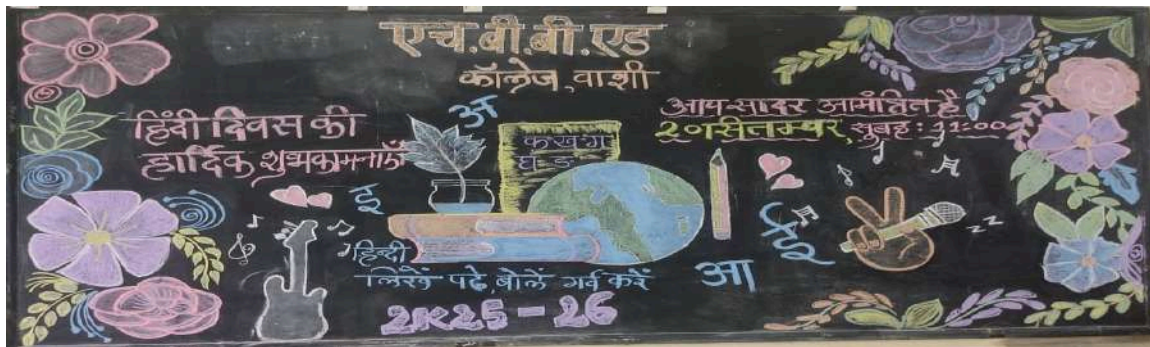 एच.बी.बी.एड
कॉलेज,वाशी
हिंदी दिवस की
हार्दिक शुभकामनाएँ
आप सादर आमंत्रित है
20 सीतम्बर, सुबह : 11:00
अ
क ख ग
घ ङ
इ
ई
आ
हिन्दी
लिखें पढे, बोलें गर्व करें
2K25-26